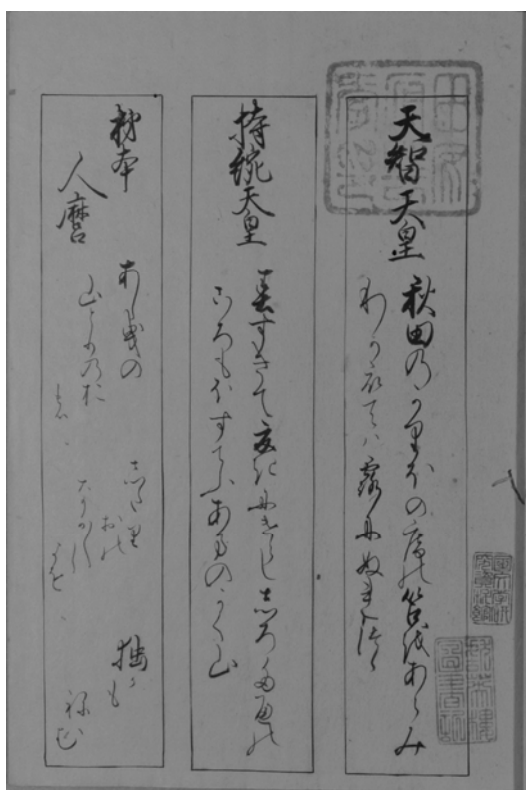 天智天皇
秋田乃かりほの庵の苫をあらみ
わか衣てハ露にぬれつゝ
持統天皇
春すきて夏きにけらし志ろたへの
ころもほすてふあまのかく山
柿本
人麿
あし曳の
山とりのお
志たり
おの
なか〳〵し
よを
独かも
ねむ